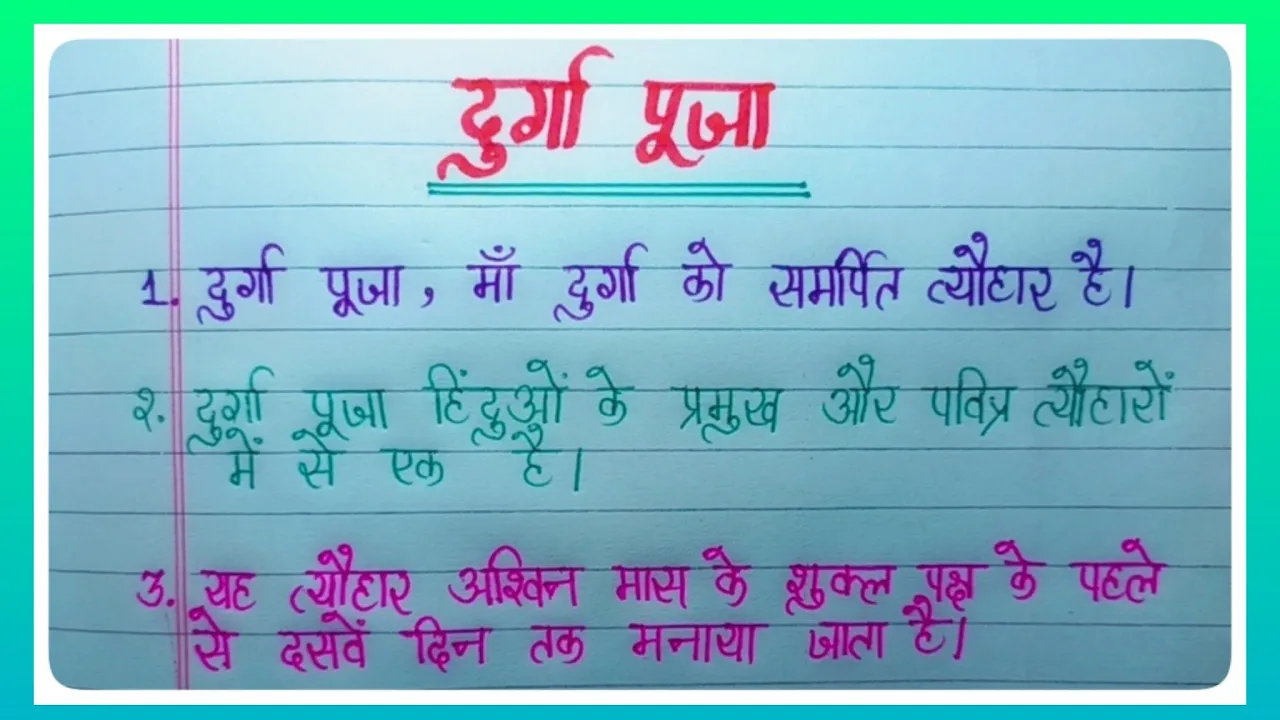 दुर्गा पूजा
1. दुर्गा पूजा, माँ दुर्गा को समर्पित त्यौहार है।
२. दुर्गा पूजा हिंदुओं के प्रमुख और पवित्र त्यौहारों
में से एक है।
3. यह त्यौहार अश्विन मास के शुक्ल पक्ष के पहले
से दसवें दिन तक मनाया जाता है।